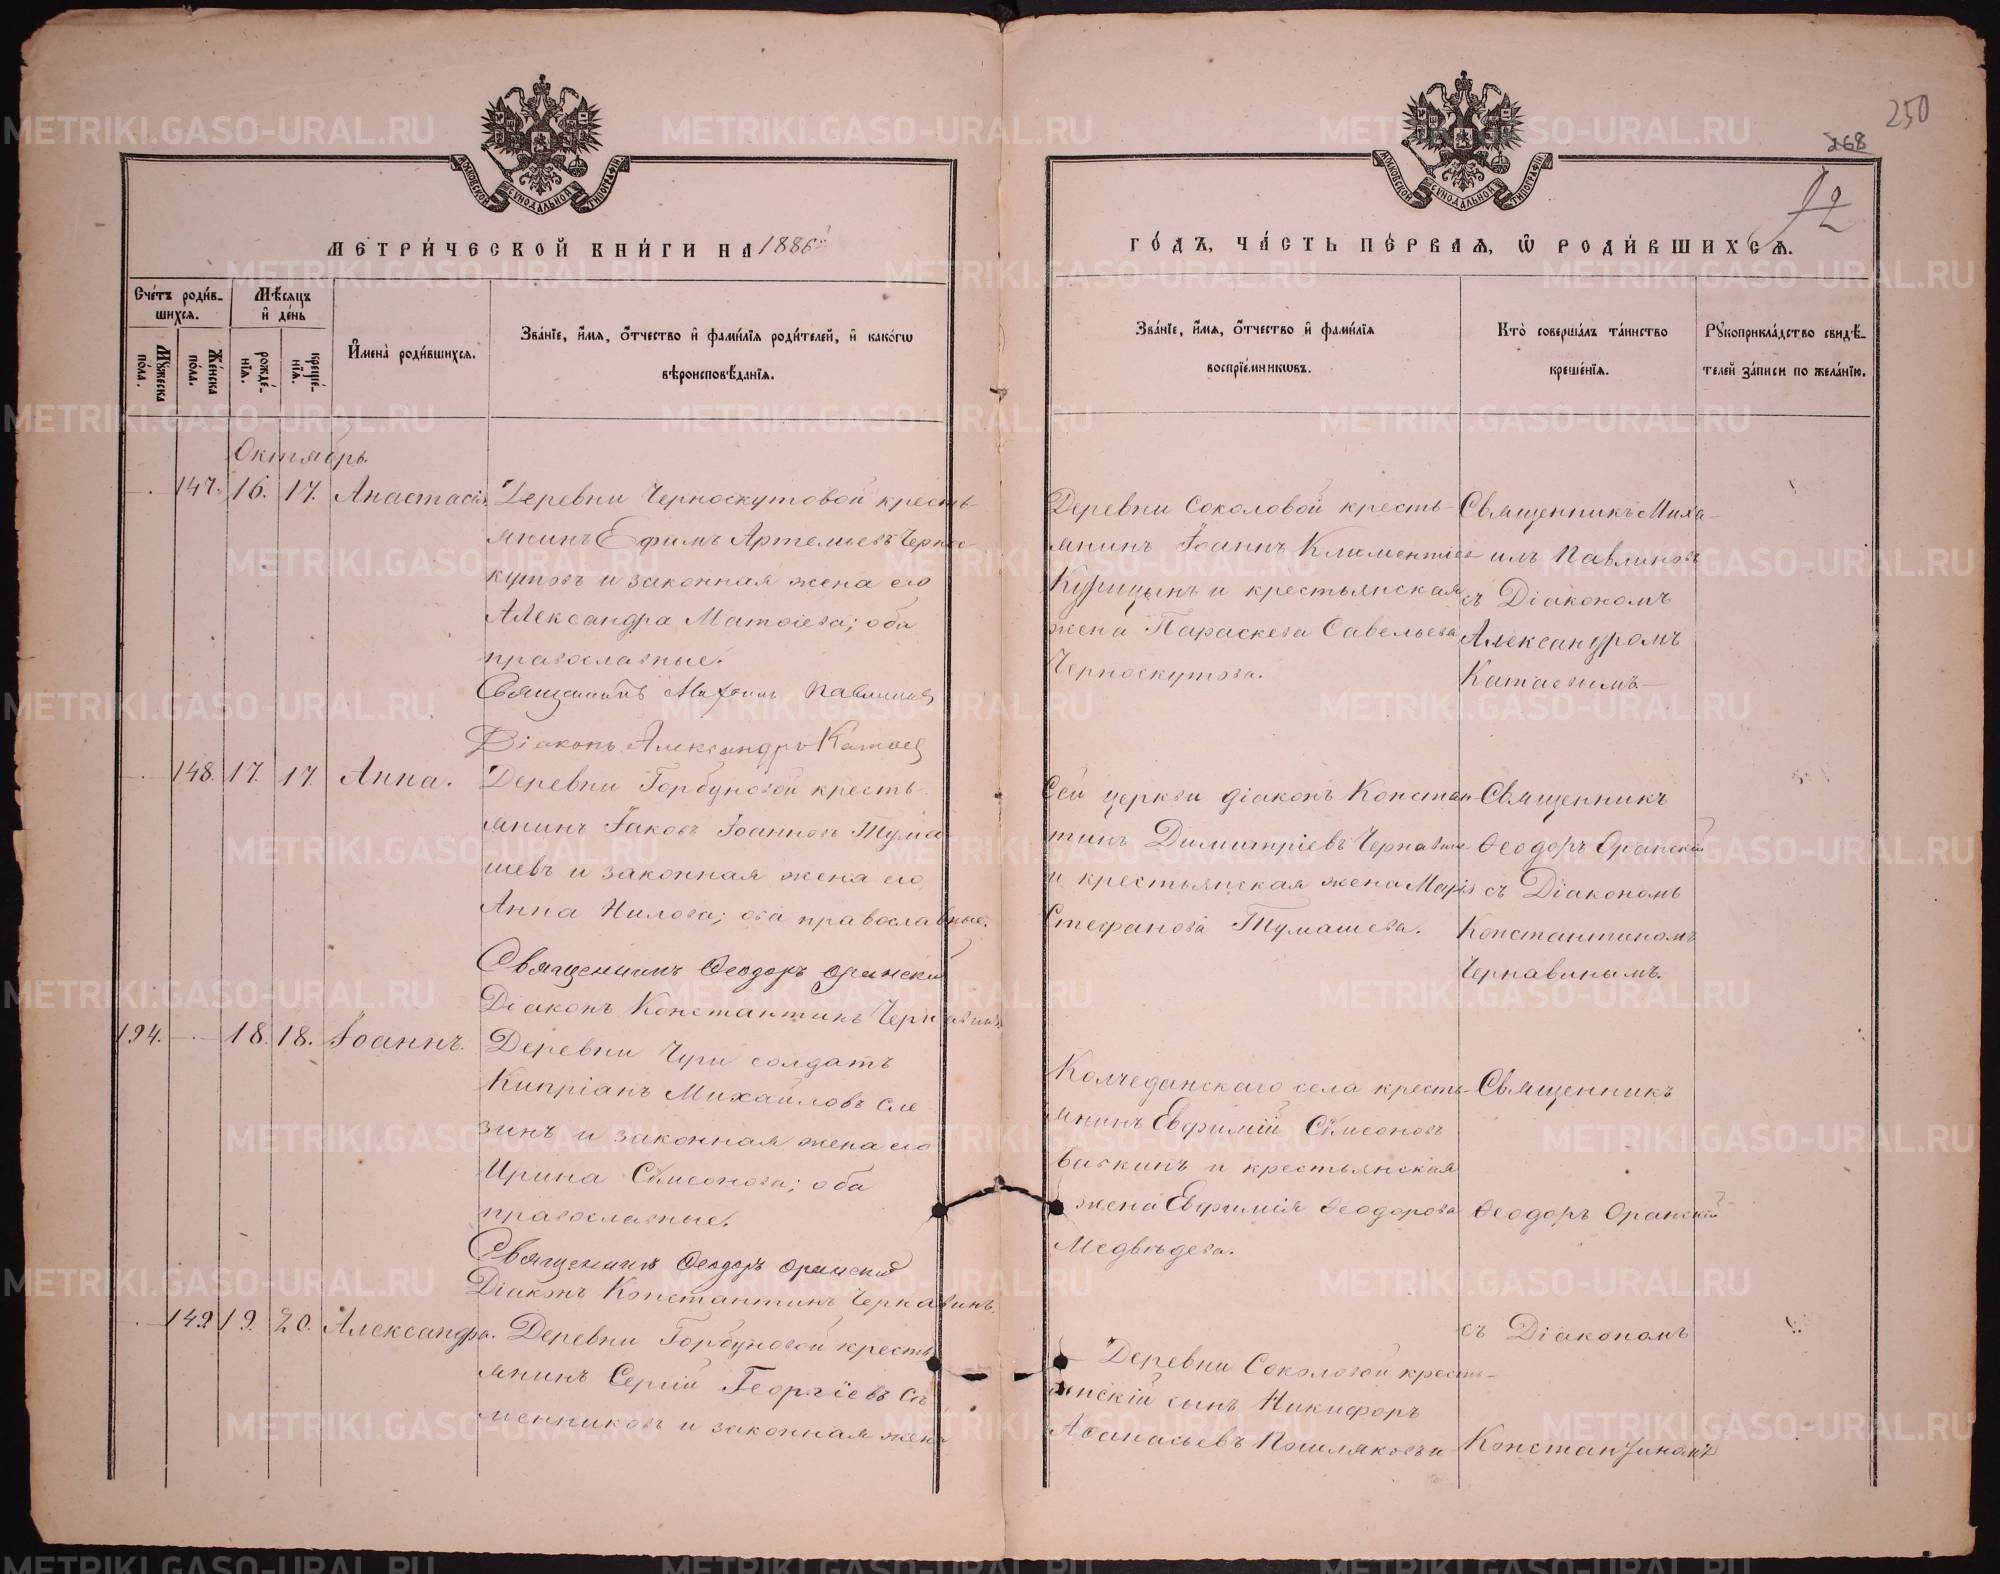 250
268
92
МОСКОВСКОЙ СѴНОДАЛЬНОЙ ТИПОГРАФІИ
МОСКОВСКОЙ СѴНОДАЛЬНОЙ ТИПОГРАФІИ
МЕТРИ́ЧЕСКОЙ КНИ́ГИ НА 1886й
ГО́ДЪ, ЧА́СТЬ ПЕ́РВАѦ, Ѡ҆ РОДИ́ВШИХСѦ.
Сче́тъ роди́в-
шихсѧ.
Мꙋ́жеска
по́ла.
Же́нска
по́ла.
Мѣ́сѧцъ
и҆ де́нь
рожде́-
нїѧ.
креще́-
нїѧ.
И҆мена̀ роди́вшихсѧ.
Зва́нїе, и҆́мѧ, ѻ҆́тчество и҆ фами́лїѧ роди́телей, и҆ како́гѡ
вѣроисповѣ́данїѧ.
Зва́нїе, и҆́мѧ, ѻ҆́тчество и҆ фами́лїѧ
воспрїе́мникѡвъ.
Кто̀ соверша́лъ та́инство
креще́нїѧ.
Рꙋкоприкла́дство свидѣ́-
телей за́писи по жела́нїю.
Октябрь.
147. 16. 17. Анастасія. Деревни Черноскутовой кресть-
янинъ Ефимъ Артемьевъ Чернос-
кутовъ и законная жена его
Александра Матвіева; оба
православные.
Священникъ Михаилъ Павлиновъ
Діаконъ Александръ Катаев
Деревни Соколовой кресть-
янинъ Іоаннъ Климентіев
Курицынъ и крестьянская
жена Параскева Савельева
Черноскутова.
Священникъ Миха-
илъ Павлиновъ
съ Діакономъ
Александромъ
Катаевымъ
148. 17. 17. Анна. Деревни Горбуновой кресть-
янинъ Іаковъ Іоанновъ Тума
шевъ и законная жена его
Анна Нилова; оба православные.
Священникъ Ѳеодоръ Оранскій
Діаконъ Константинъ Чернавинъ
Сей церкви діаконъ Констан
тинъ Димитріевъ Чернавинъ
и крестьянская жена Марія
Стефанова Тумашева.
Священникъ
Ѳеодоръ Оранскій
съ Діакономъ
Константиномъ
Чернавинымъ.
194. 18. 18. Іоаннъ. Деревни Чуги солдатъ
Кипріанъ Михайловъ Сле
зинъ и законная жена его
Ирина Сѵмеонова; оба
православные.
Священникъ Ѳеодоръ Оранскій
Діаконъ Константинъ Чернавинъ.
Колчеданскаго села кресть
янинъ Евфимій Сѵмеоновъ
Бабкинъ и крестьянская
жена Евфимія Ѳеодорова
Медвѣдева.
Священникъ
Ѳеодоръ Оранскій
149. 19. 20. Александра. Деревни Горбуновой кресть
янинъ Сергій Георгіевъ Сѣ
менниковъ и законная жена
Деревни Соколовой кресть-
янскій сынъ Никифоръ
Аѳанасьевъ Пошляковъ и
съ Діакономъ
Константиномъ
METRIKI.GASO-URAL.RU